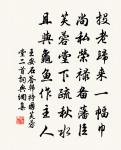 投老歸來一幅巾
尚私榮祿備藩臣
芙蓉堂下疏秋水
且與龜魚作主人
王安石答韓持國芙蓉
堂二首詞典網集